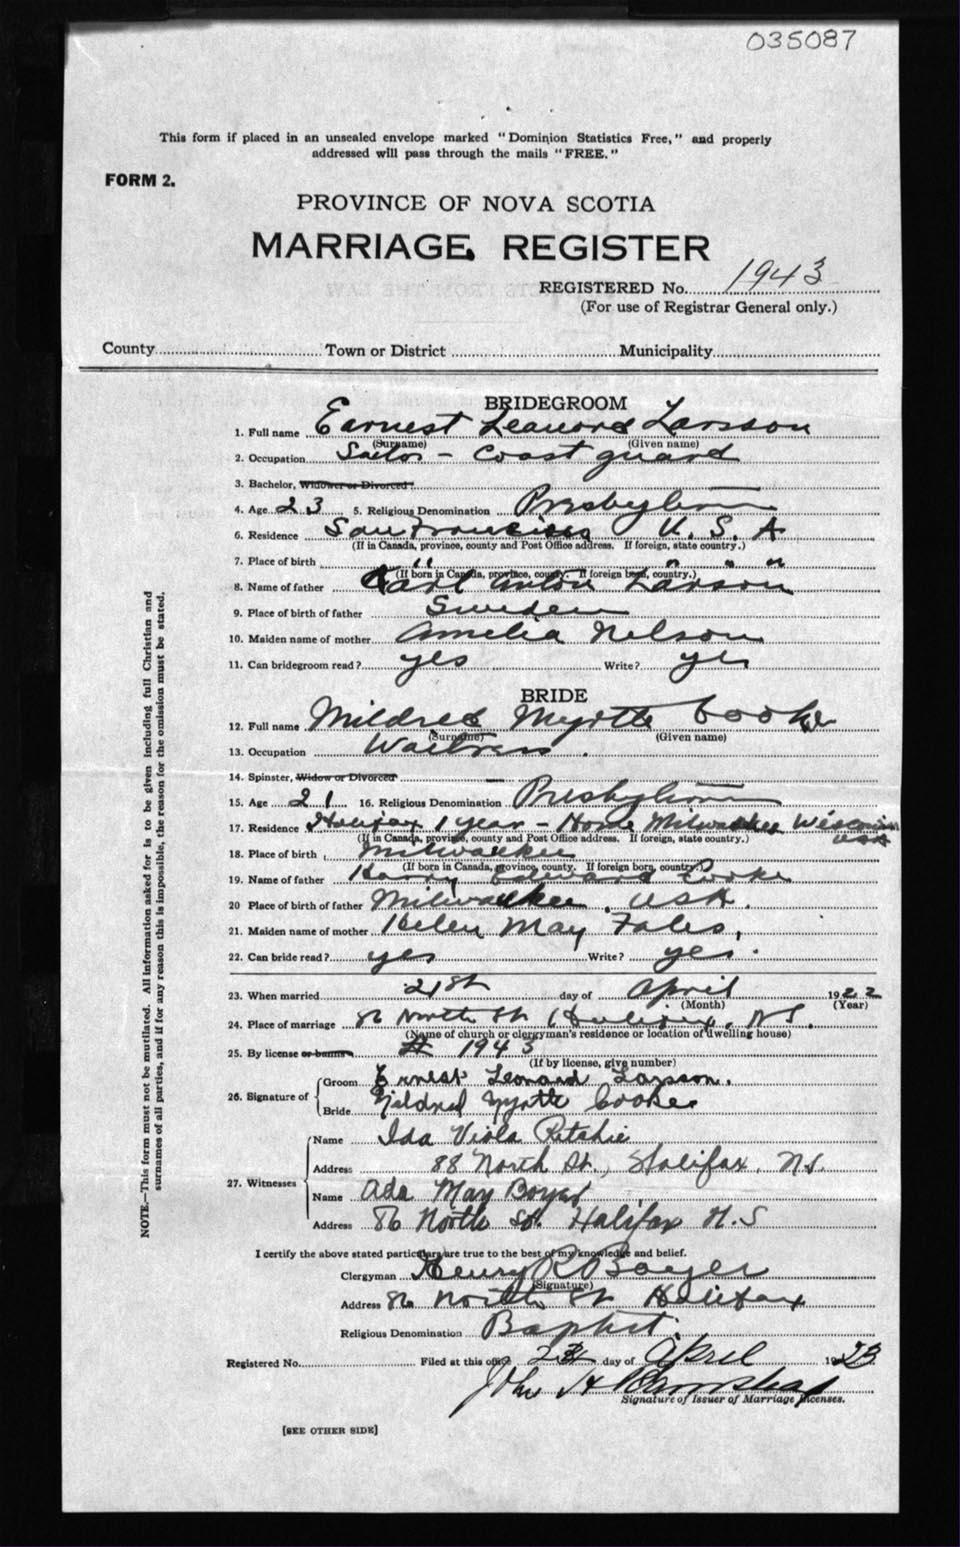 035087
This form if placed in an unsealed envelope marked "Dominion Statistics Free," and properly
addressed will pass through the mails "FREE."
FORM 2.
PROVINCE OF NOVA SCOTIA
MARRIAGE REGISTER
REGISTERED No. 1943
(For use of Registrar General only.)
County Town or District Municipality
BRIDEGROOM
1. Full name Earnest Leonard Larsson
(Surname) (Given name)
2. Occupation Sailor - Coast guard
3. Bachelor, Widower or Divorced
4. Age 23 5. Religious Denomination Presbyterian
6. Residence San Francisco U. S. A
(If in Canada, province, county and Post Office address. If foreign, state country.)
7. Place of birth " " "
(If born in Canada, province, county. If foreign born, country.)
8. Name of father Karl Anton Larson
9. Place of birth of father Sweden
10. Maiden name of mother Amelia Nelson
11. Can bridegroom read? yes Write? yes
BRIDE
12. Full name Mildred Myrtle Cooke
(Surname) (Given name)
13. Occupation Waitress.
14. Spinster, Widow or Divorced -
15. Age 21 16. Religious Denomination Presbyterian
17. Residence Halifax 1 year - Home Milwaukee Wisconsin
USA
(If in Canada, province, county and Post Office address. If foreign, state country.)
18. Place of birth Milwaukee
(If born in Canada, province, county. If foreign born, country.)
19. Name of father Harry Edward Cooke
20 Place of birth of father Milwaukee. USA.
21. Maiden name of mother Helen May Fales,
22. Can bride read? yes Write? yes.
23. When married 21st day of April 1922
(Month) (Year)
24. Place of marriage 86 North St Halifax, NS.
(Name of church or clergyman's residence or location of dwelling house)
25. By license or banns # 1943
(If by license, give number)
26. Signature of Groom Ernest Leonard Larson.
Bride Mildred Myrtle Cooke
27. Witnesses Name Ida Viola Ritchie
Address 88 North St., Halifax, N.S.
Name Ada May Boyer
Address 86 North St. Halifax N.S
I certify the above stated particulars are true to the best of my knowledge and belief.
Clergyman Henry R Boyer
(Signature)
Address 86 North St Halifax
Religious Denomination Baptist.
Registered No. Filed at this office day of April 1923
John H
Signature of Issuer of Marriage Licenses.
[SEE OTHER SIDE]
NOTE.—This form must not be mutilated. All information asked for is to be given including full Christian and
surnames of all parties, and if for any reason this is impossible, the reason for the omission must be stated.